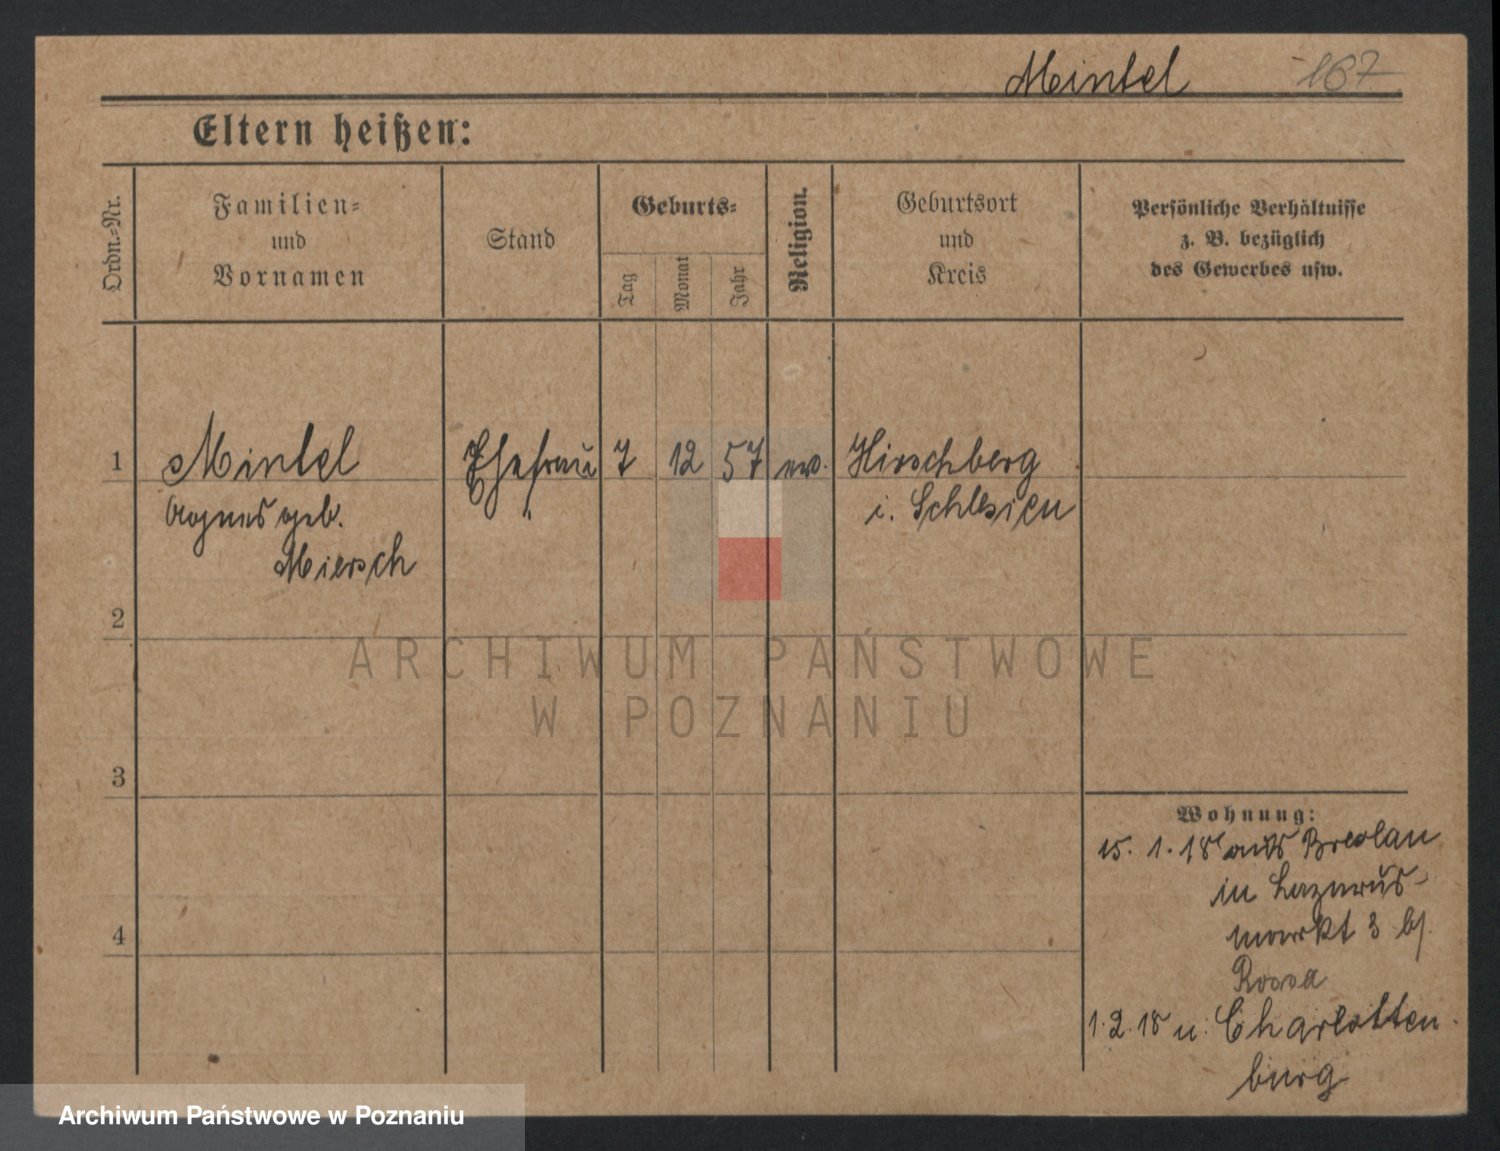 Mintel 167
Eltern heißen:
Ordn.-Nr.
Familien-
und
Vornamen
Stand
Geburts-
Tag
Monat
Jahr
Religion.
Geburtsort
und
Kreis
Persönliche Verhältnisse
z. B. bezüglich
des Gewerbes usw.
1 Mintel Ehefrau 7 12 57 ev. Hirschberg
Agnes geb. i. Schlesien
Miersch
2
3
4
Wohnung:
15. 1. 18 aus Breslau
in Lazarus-
markt 3 bj.
Rossa
1. 2. 18 n. Charlotten
burg
ARCHIWUM PAŃSTWOWE
W POZNANIU
Archiwum Państwowe w Poznaniu